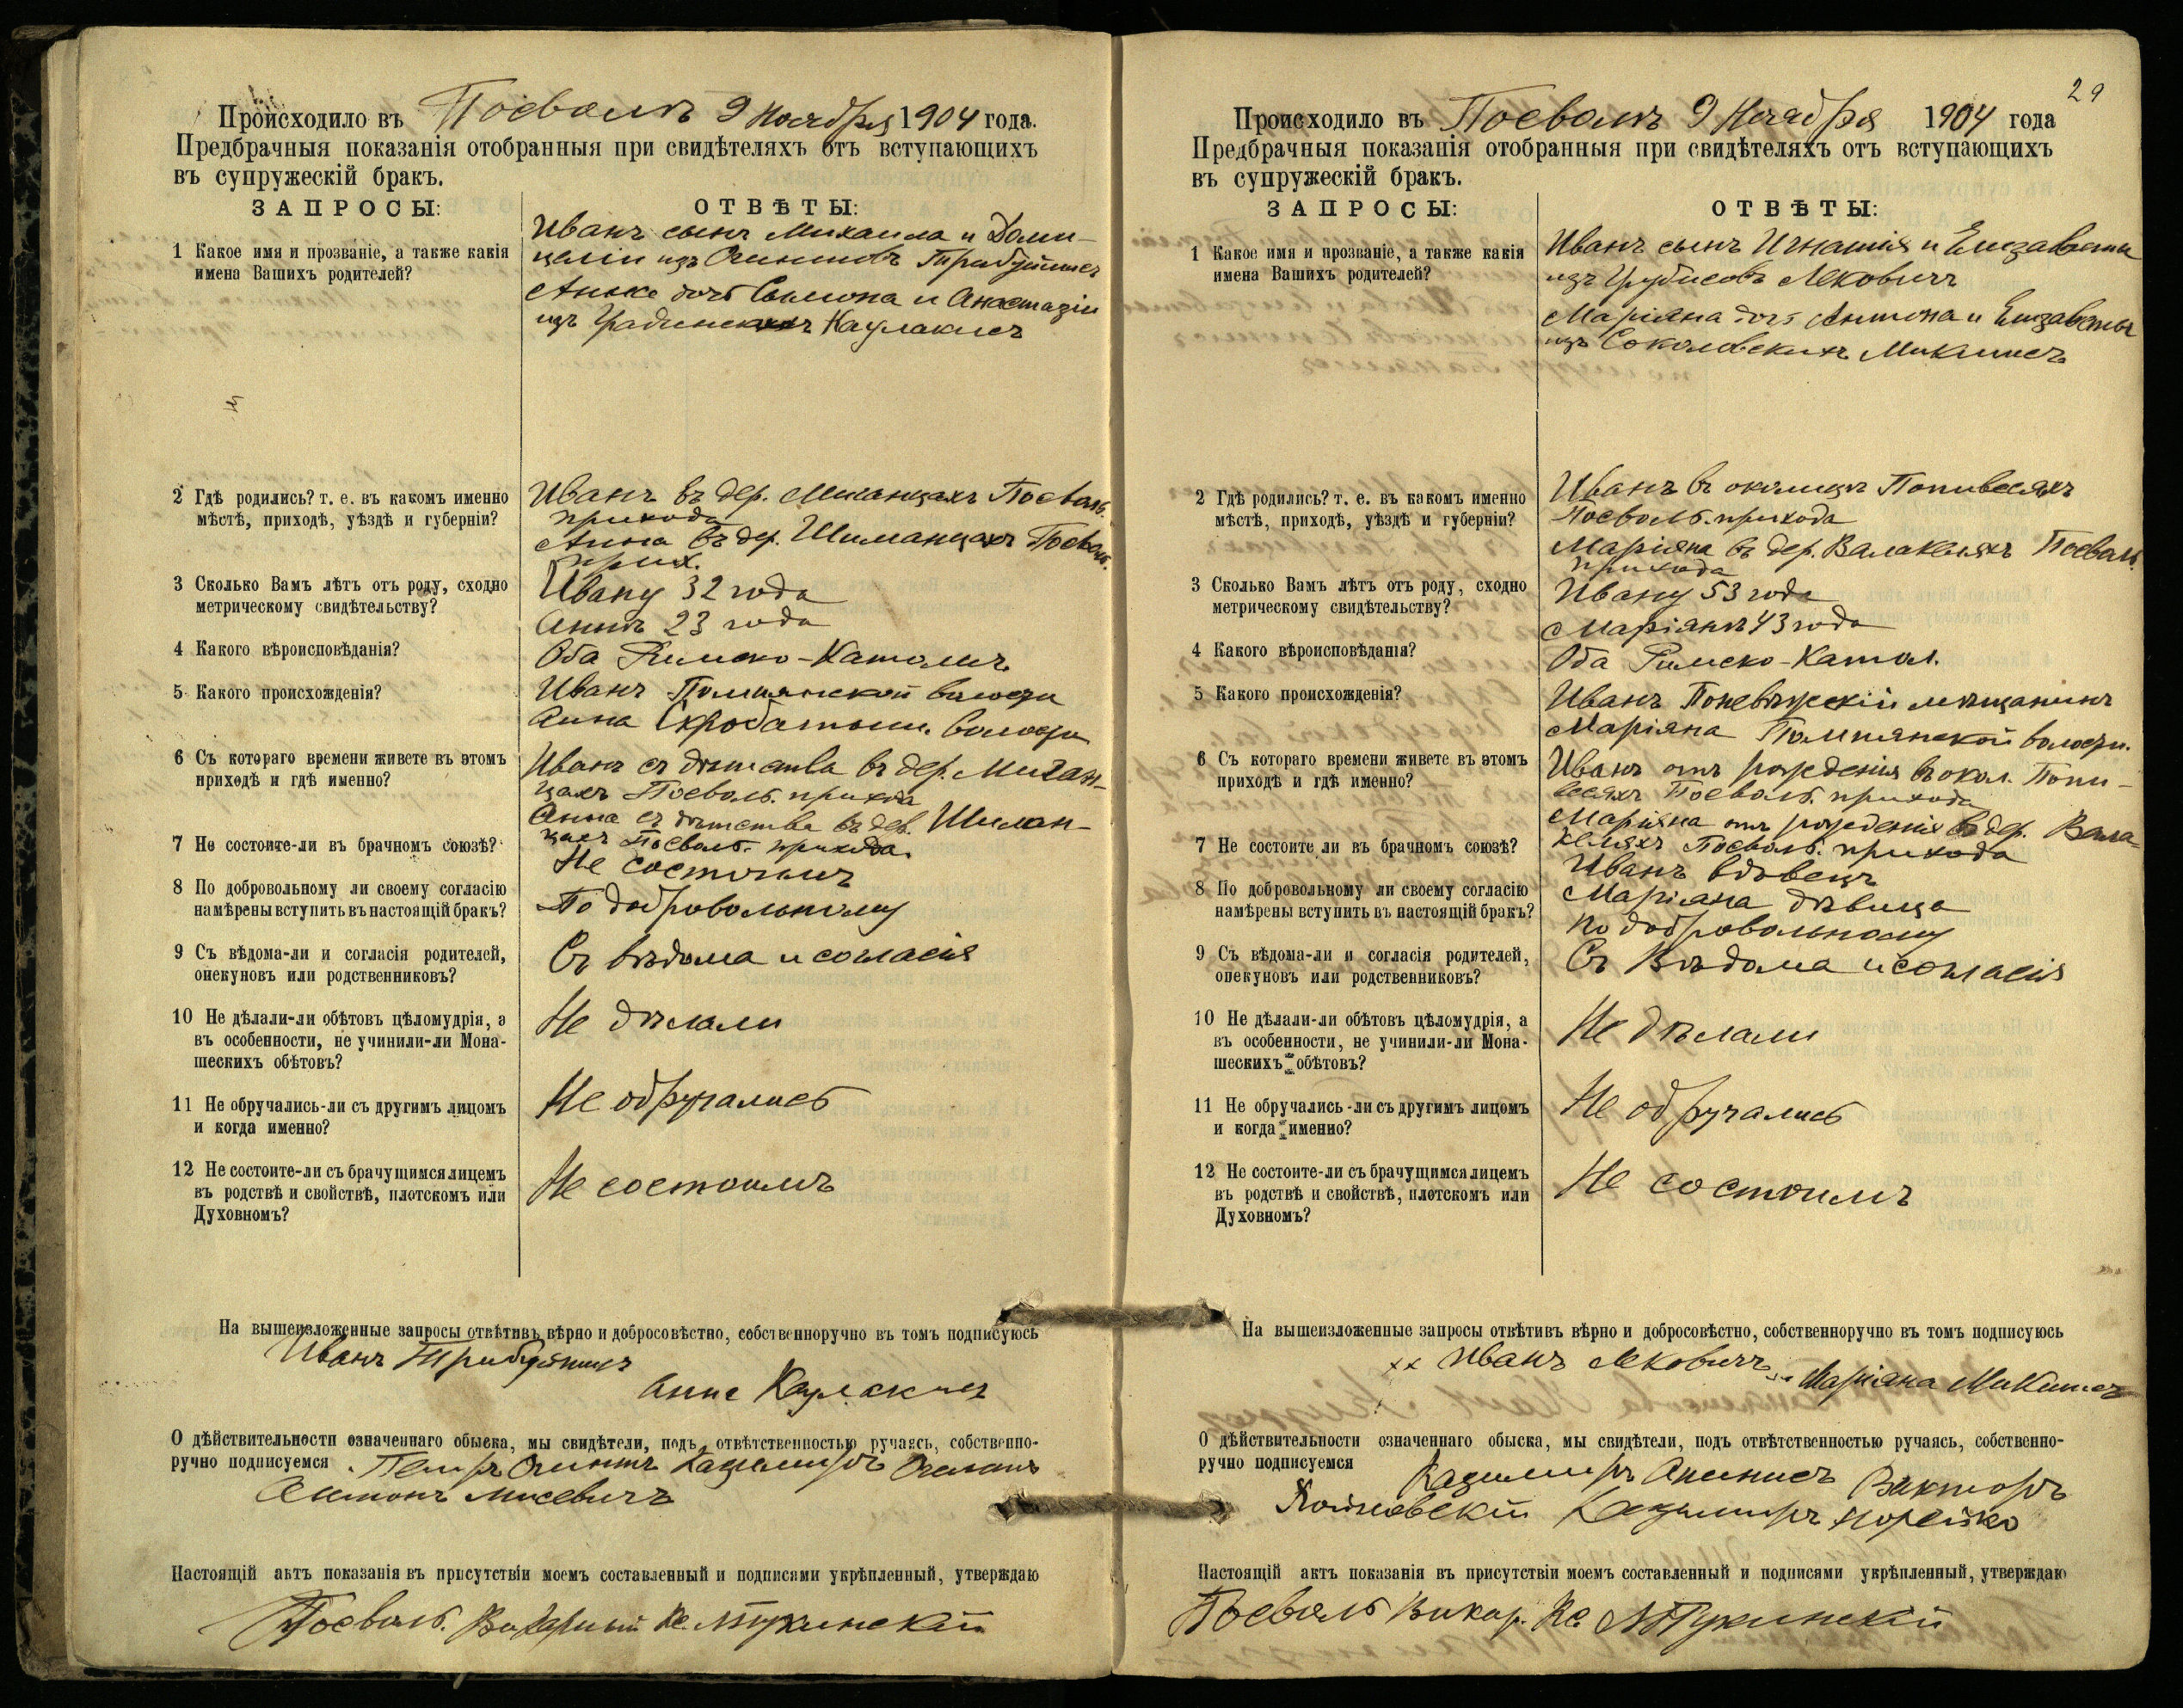 Происходило въ Поевалѣ 9 Ноября 1904 года.
Предбрачныя показанія отобранныя при свидѣтеляхъ отъ вступающихъ
въ супружескій бракъ.
ЗАПРОСЫ:
ОТВѢТЫ:
1 Какое имя и прозваніе, а также какія
имена Вашихъ родителей?
Иванъ сынъ Михаила и Доми-
целіи изъ
дочь Сымона и Анастазіи
изъ Каулакисъ
2 Гдѣ родились? т. е. въ какомъ именно
мѣстѣ, приходѣ, уѣздѣ и губерніи?
Иванъ въ дер. Мичанцахъ Поеваль.
прихода
Анна въ дер. Шиманцахъ Поеваль.
прих.
3 Сколько Вамъ лѣтъ отъ роду, сходно
метрическому свидѣтельству?
Ивану 32 года
Аннѣ 23 года
4 Какого вѣроисповѣданія?
Оба Римско-Католич.
5 Какого происхожденія?
Иванъ Помпянской волости
Анна волости
6 Съ котораго времени живете въ этомъ
приходѣ и гдѣ именно?
Иванъ съ дѣтства въ дер. Мичан-
цахъ Поеваль. прихода
Анна съ дѣтства въ дер. Шиман-
цахъ Поеваль. прихода.
7 Не состоите-ли въ брачномъ союзѣ?
Не состоимъ
8 По добровольному ли своему согласію
намѣрены вступить въ настоящій бракъ?
По добровольному
9 Съ вѣдома-ли и согласія родителей,
опекуновъ или родственниковъ?
Съ вѣдома и согласія
10 Не дѣлали-ли обѣтовъ цѣломудрія, а
въ особенности, не учинили-ли Мона-
шескихъ обѣтовъ?
Не дѣлали
11 Не обручались-ли съ другимъ лицомъ
и когда именно?
Не обручались
12 Не состоите-ли съ брачущимся лицемъ
въ родствѣ и свойствѣ, плотскомъ или
Духовномъ?
Не состоимъ
На вышеизложенные запросы отвѣтивъ вѣрно и добросовѣстно, собственноручно въ томъ подписуюсь
Иванъ
Анна Каулакисъ
О дѣйствительности означеннаго обыска, мы свидѣтели, подъ отвѣтственностью ручаясь, собственно-
ручно подписуемся Петръ Казимиръ
Антонъ Мисевичъ
Настоящій актъ показанія въ присутствіи моемъ составленный и подписями укрѣпленный, утверждаю
Поеваль. Викарный Кс.
29
Происходило въ Поевалѣ 9 Ноября 1904 года
Предбрачныя показанія отобранныя при свидѣтеляхъ отъ вступающихъ
въ супружескій бракъ.
ЗАПРОСЫ:
ОТВѢТЫ:
1 Какое имя и прозваніе, а также какія
имена Вашихъ родителей?
Иванъ сынъ Игнатія и Елизаветы
изъ Лековичъ
Маріяна дочь Антона и Елизаветы
изъ Соколовскихъ Микшисъ
2 Гдѣ родились? т. е. въ какомъ именно
мѣстѣ, приходѣ, уѣздѣ и губерніи?
Иванъ въ околицѣ Попивесяхъ
Поеваль. прихода
Маріяна въ дер. Валакеляхъ Поеваль.
прихода
3 Сколько Вамъ лѣтъ отъ роду, сходно
метрическому свидѣтельству?
Ивану 53 года
Маріянѣ 43 года
4 Какого вѣроисповѣданія?
Оба Римско-Катол.
5 Какого происхожденія?
Иванъ Поневѣжскій мѣщанинъ
Маріяна Помпянской волости.
6 Съ котораго времени живете въ этомъ
приходѣ и гдѣ именно?
Иванъ отъ рожденія въ окол. Попи-
весяхъ Поеваль. прихода
Маріяна отъ рожденія въ дер. Вала-
келяхъ Поеваль. прихода
7 Не состоите ли въ брачномъ союзѣ?
Иванъ вдовецъ
Маріяна дѣвица
8 По добровольному ли своему согласію
намѣрены вступить въ настоящій бракъ?
По добровольному
9 Съ вѣдома-ли и согласія родителей,
опекуновъ или родственниковъ?
Съ Вѣдома и согласія
10 Не дѣлали-ли обѣтовъ цѣломудрія, а
въ особенности, не учинили-ли Мона-
шескихъ обѣтовъ?
Не дѣлали
11 Не обручались-ли съ другимъ лицомъ
и когда именно?
Не обручались
12 Не состоите-ли съ брачущимся лицемъ
въ родствѣ и свойствѣ, плотскомъ или
Духовномъ?
Не состоимъ
На вышеизложенные запросы отвѣтивъ вѣрно и добросовѣстно, собственноручно въ томъ подписуюсь
хх Иванъ Лековичъ Маріяна Микшисъ
О дѣйствительности означеннаго обыска, мы свидѣтели, подъ отвѣтственностью ручаясь, собственно-
ручно подписуемся Казимиръ Викторъ
Казимиръ Норейко
Настоящій актъ показанія въ присутствіи моемъ составленный и подписями укрѣпленный, утверждаю
Поеваль Викар. Кс.